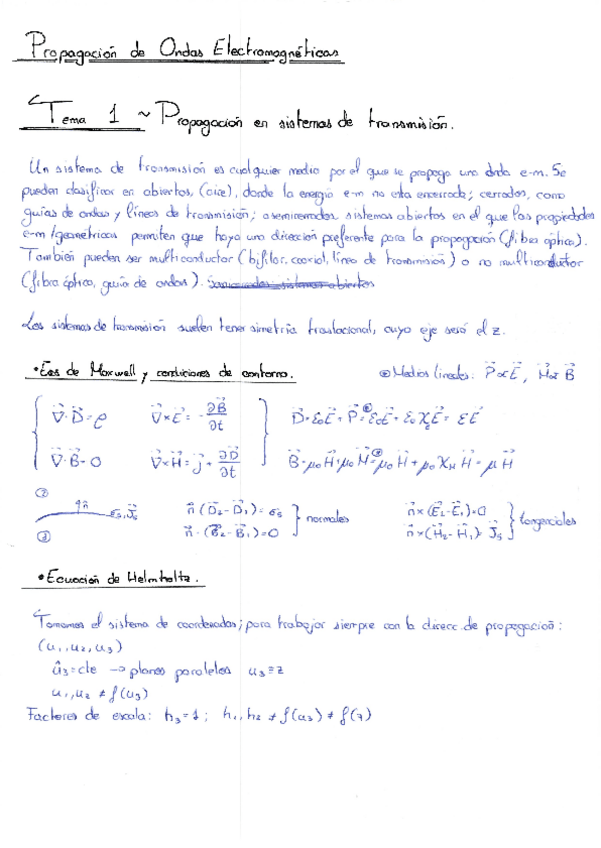 Propagación de Ondas Electromagnéticas
Tema 1 ~ Propagación en sistemas de transmisión.
Un sistema de transmisión es cualquier medio por el que se propaga una onda e-m. Se
pueden clasificar en abiertos (aire), donde la energía e-m no esta encerrada; cerrados, como
guías de ondas y líneas de transmisión; o semicerrados, sistemas abiertos en el que las propiedades
e-m/geométricas permiten que haya una dirección preferente para la propagación (fibra óptica).
También pueden ser multiconductor (bifilar, coaxial, línea de transmisión) o no multiconductor
(fibra óptica, guía de ondas).
Los sistemas de transmisión suelen tener simetría traslacional, cuyo eje será el z.
• Ecs de Maxwell y condiciones de contorno. ⊛ Medios lineales: P⃗ ∝ E⃗, M⃗ ∝ B⃗
∇⃗·D⃗ = ρ ∇⃗×E⃗ = -∂B⃗/∂t D⃗ = ε₀E⃗ + P⃗ =^⊛ ε₀E⃗ + ε₀χₑE⃗ = εE⃗
∇⃗·B⃗ = 0 ∇⃗×H⃗ = j⃗ + ∂D⃗/∂t B⃗ = μ₀H⃗ + μ₀M⃗ =^⊛ μ₀H⃗ + μ₀χ_M H⃗ = μH⃗
② n̂ σs, J⃗s ①
n⃗·(D⃗₂-D⃗₁) = σs } normales n⃗×(E⃗₂-E⃗₁) = 0 } tangenciales
n⃗·(B⃗₂-B⃗₁) = 0 n⃗×(H⃗₂-H⃗₁) = J⃗s
• Ecuación de Helmholtz.
Tomamos el sistema de coordenadas; para trabajar siempre con la direcc. de propagación:
(u₁, u₂, u₃)
û₃ = cte → planos paralelos u₃ ≡ z
u₁, u₂ ≠ f(u₃)
Factores de escala: h₃ = 1; h₁, h₂ ≠ f(u₃) ≠ f(z)